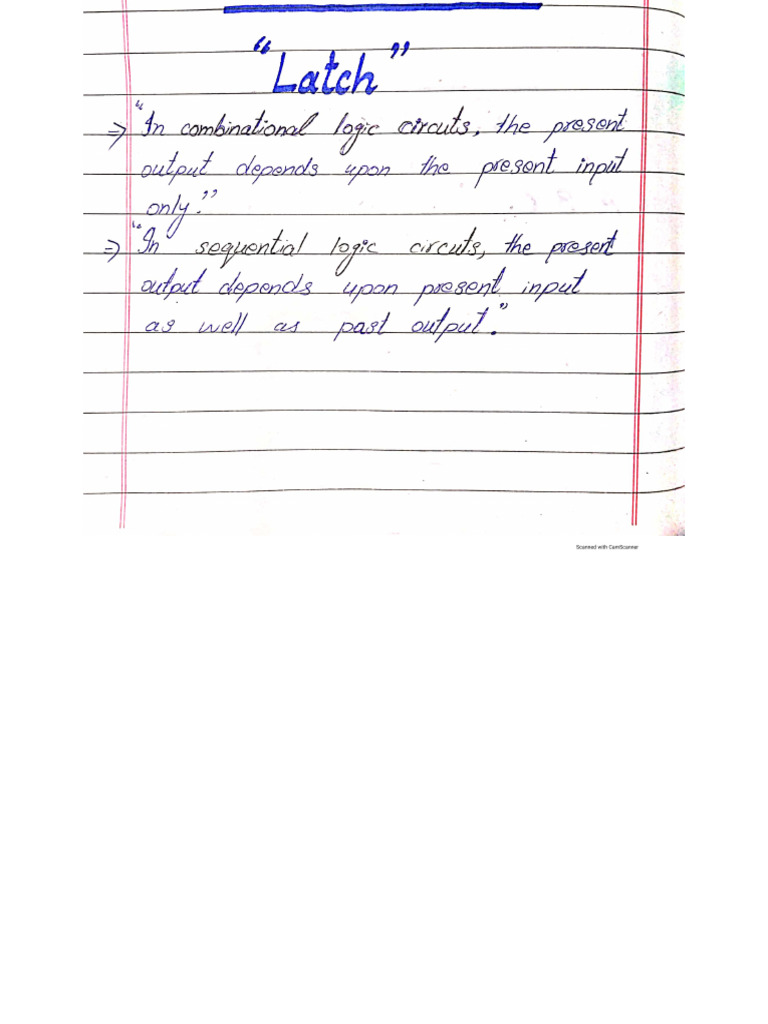 “Latch”
⇒ “In combinational logic circuts, the present
output depends upon the present input
only.”
⇒ “In sequential logic circuts, the present
output depends upon present input
as well as past output.”
Scanned with CamScanner